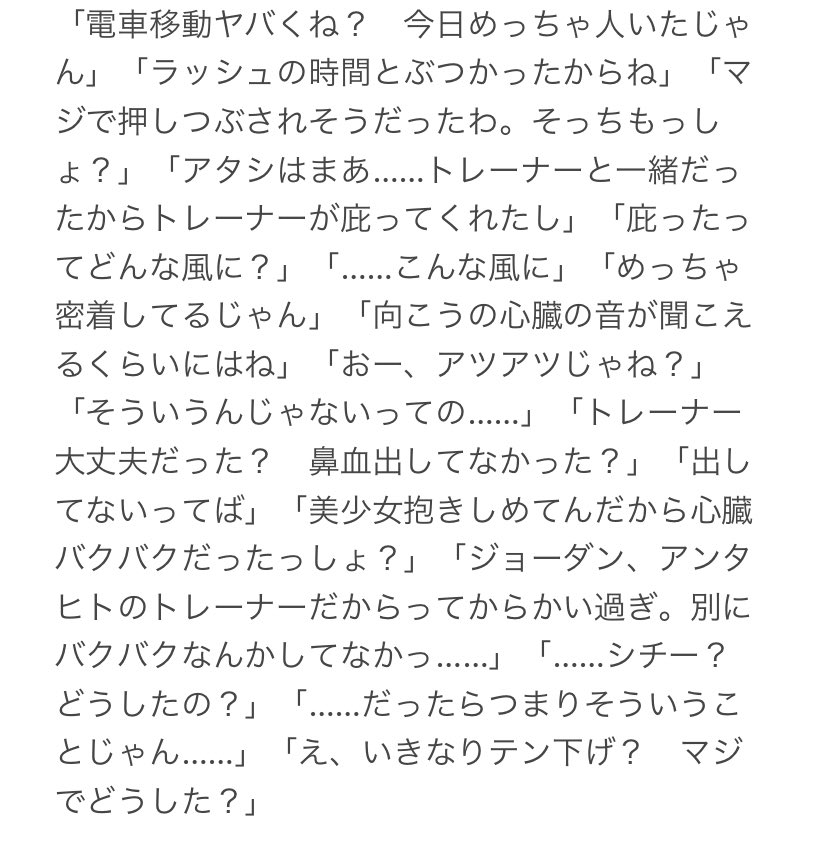 「電車移動ヤバくね？　今日めっちゃ人いたじゃ
ん」「ラッシュの時間とぶつかったからね」「マ
ジで押しつぶされそうだったわ。そっちもっし
ょ？」「アタシはまあ……トレーナーと一緒だっ
たからトレーナーが庇ってくれたし」「庇ったっ
てどんな風に？」「……こんな風に」「めっちゃ
密着してるじゃん」「向こうの心臓の音が聞こえ
るくらいにはね」「おー、アツアツじゃね？」
「そういうんじゃないっての……」「トレーナー
大丈夫だった？　鼻血出してなかった？」「出し
てないってば」「美少女抱きしめてんだから心臓
バクバクだったっしょ？」「ジョーダン、アンタ
ヒトのトレーナーだからってからかい過ぎ。別に
バクバクなんかしてなかっ……」「……シチー？
どうしたの？」「……だったらつまりそういうこ
とじゃん……」「え、いきなりテン下げ？　マジ
でどうした？」